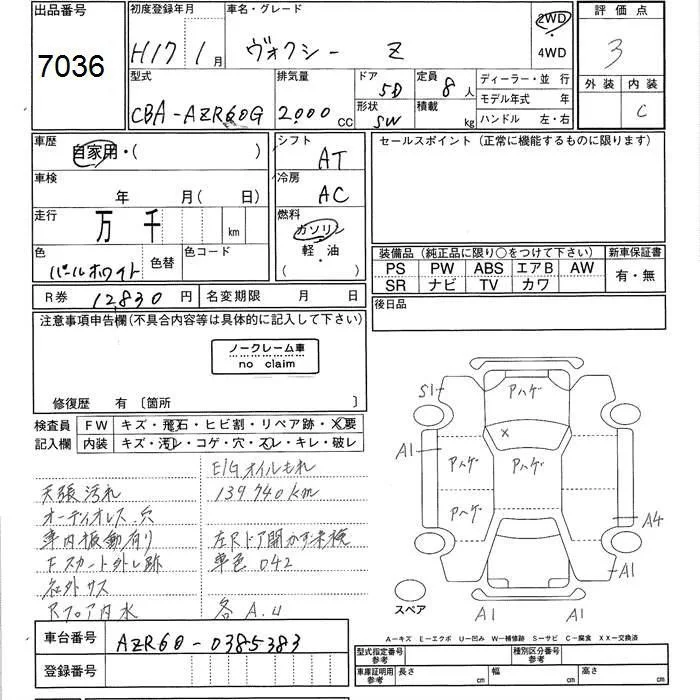 出品番号
7036
初度登録年月
H17 1月
車名・グレード
ヴォクシー Z
2WD
4WD
評価点
3
外装 内装
C
型式
CBA-AZR60G
排気量
2000 CC
ドア
5D
形状
SW
定員
8人
積載
kg
ディーラー・並行
モデル年式 年
ハンドル 左・右
車歴
自家用・( )
シフト
AT
セールスポイント(正常に機能するものに限ります)
車検
年 月(日)
冷房
AC
走行
万 千 km
燃料
ガソリン
・
軽油
・
( )
色
パールホワイト
色替
色コード
装備品(純正品に限り○をつけて下さい)
新車保証書
PS PW ABS エアB AW
SR ナビ TV カワ
有・無
R券 12830円
名変期限 月 日
後日品
注意事項申告欄(不具合内容等は具体的に記入して下さい)
ノークレーム車
no claim
修復歴 有 〔箇所 〕
検査員
記入欄
FW キズ・飛石・ヒビ割・リペア跡・X要
内装 キズ・汚レ・コゲ・穴・スレ・キレ・破レ
E/Gオイルもれ
天張汚れ
139740km
オーディオレス.穴
車内振動有り
左Rドア開かず未検
Fスカート外し跡
車色 042
社外サス
Rフロア内水
各A.U
S1
アハゲ
X
A1
アハゲ
アハゲ
アハゲ
A4
A1
スペア
A1
A1
A-キズ E-エクボ U-凹み W-補修跡 S-サビ C-腐食 XX-交換済
車台番号
AZR60-0385383
登録番号
型式指定番号
参考
種別区分番号
参考
車庫証明用
参考
長さ cm
幅 cm
高さ cm